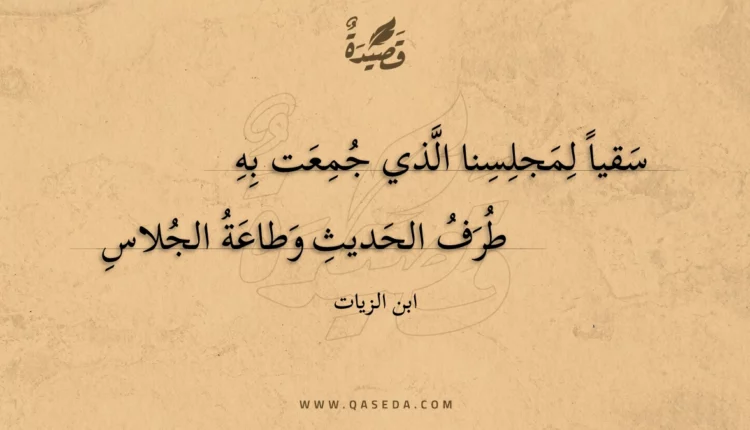 قَصِيدَةٌ
سَقياً لِمَجلِسِنا الَّذي جُمِعَت بِهِ
طُرَفُ الحَديثِ وَطاعَةُ الجُلاسِ
ابن الزيات
WWW.QASEDA.COM